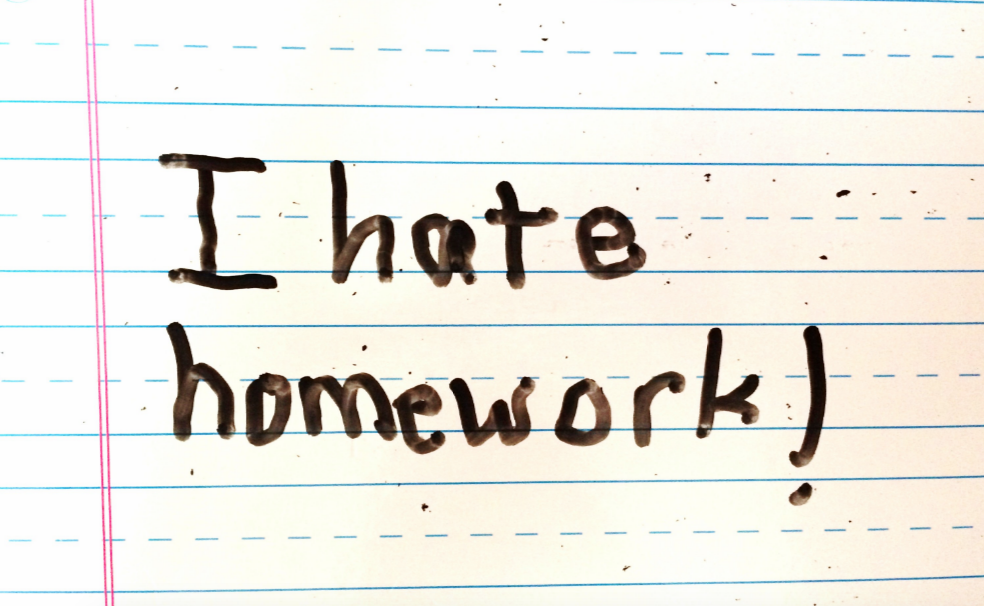 I hate
homework!